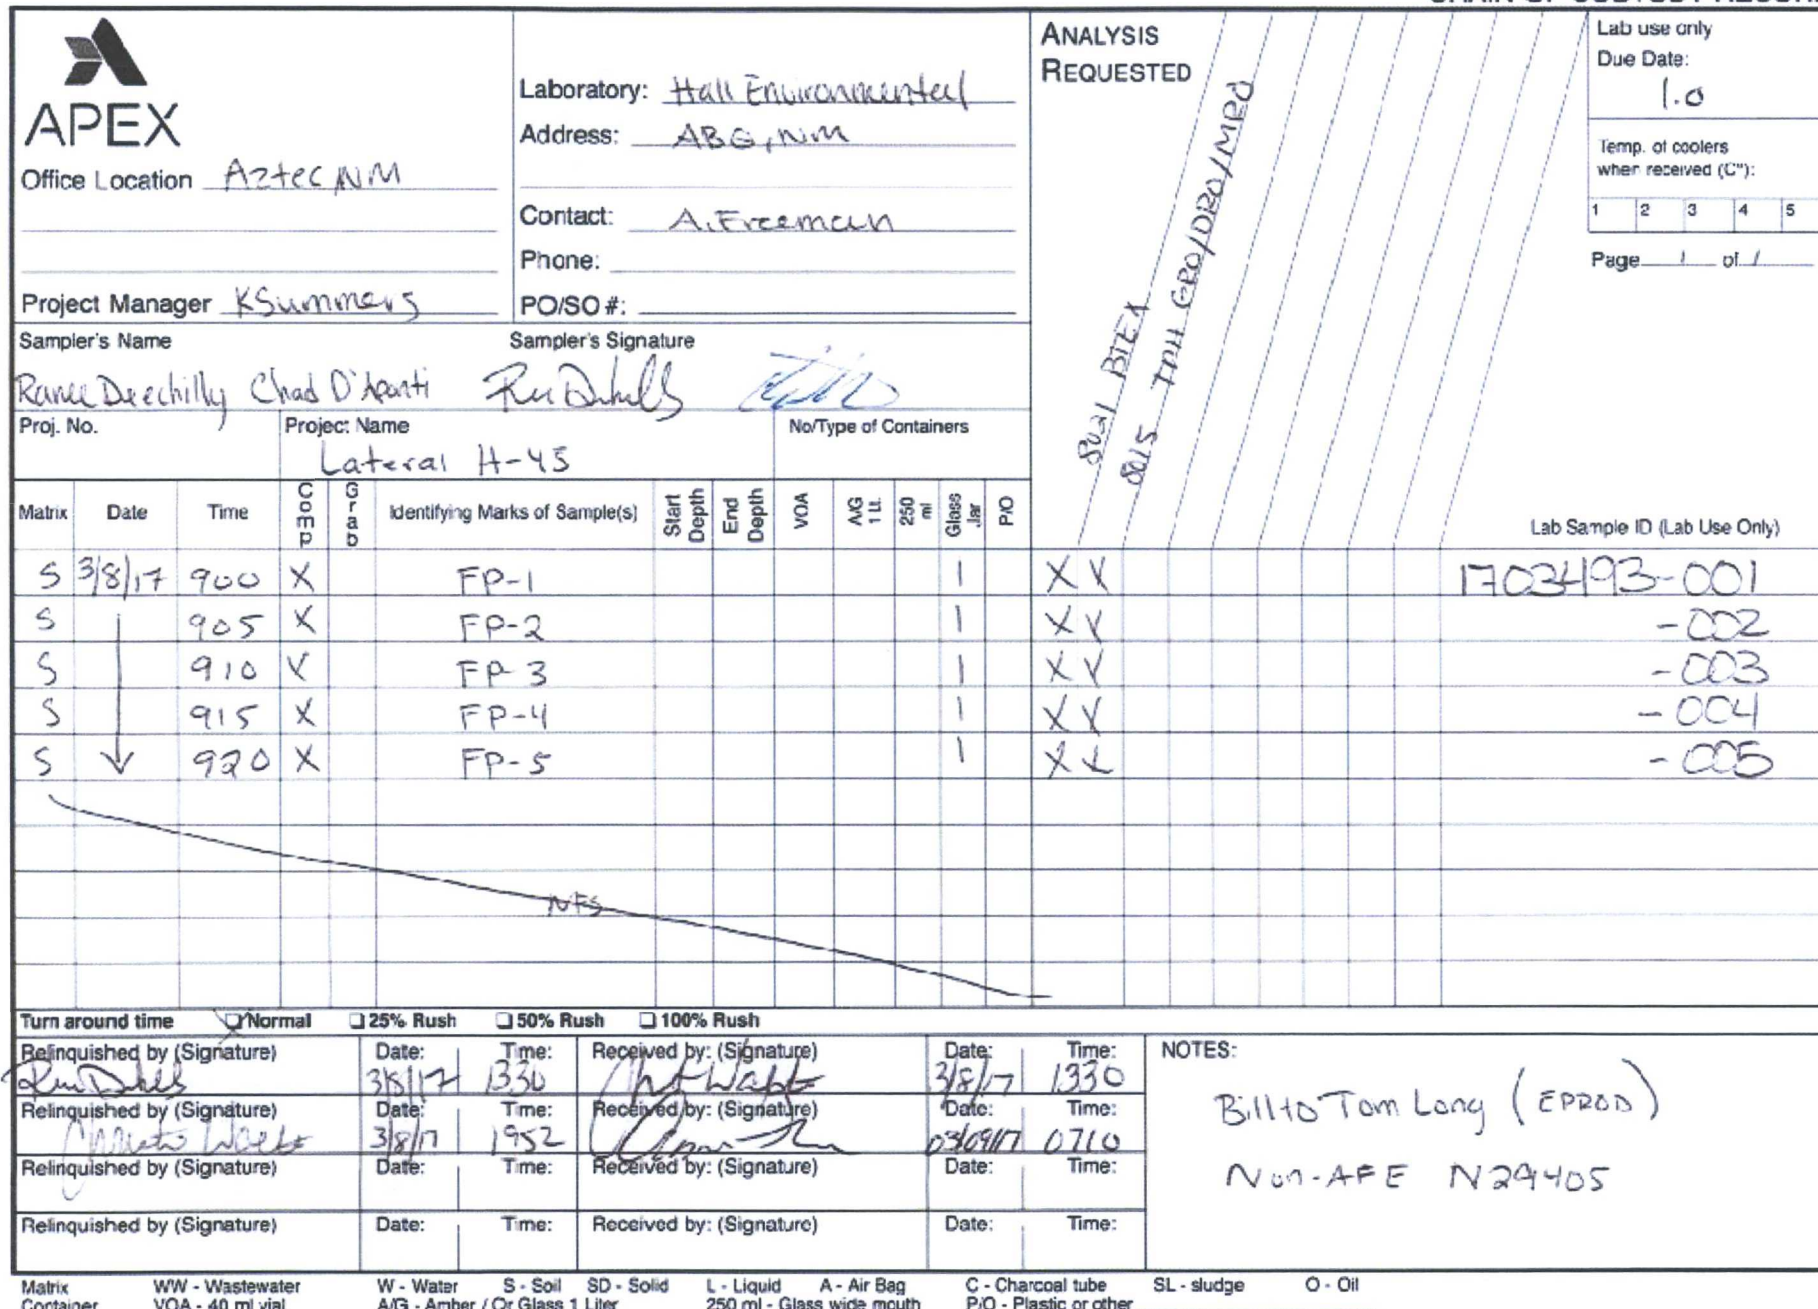 CHAIN OF CUSTODY RECORD
APEX
Office Location Aztec, NM
Project Manager KSummers
Laboratory: Hall Environmental
Address: ABQ, NM
Contact: A. Freeman
Phone:
PO/SO #:
ANALYSIS
REQUESTED
8021 BTEX
8015 TPH GRO/DRO/MRO
Lab use only
Due Date:
1.0
Temp. of coolers
when received (C°):
1 2 3 4 5
Page 1 of 1
Sampler's Name
Ranee Deechilly Chad D'Aponti
Sampler's Signature
Proj. No.
Project Name
Lateral H-45
No/Type of Containers
Matrix Date Time Comp Grab Identifying Marks of Sample(s) Start Depth End Depth VOA A/G 1 Lt. 250 ml Glass Jar P/O Lab Sample ID (Lab Use Only)
S 3/8/17 900 X FP-1 1 X X 1703493-001
S 905 X FP-2 1 X X -002
S 910 X FP-3 1 X X -003
S 915 X FP-4 1 X X -004
S 920 X FP-5 1 X X -005
NFS
Turn around time Normal 25% Rush 50% Rush 100% Rush
Relinquished by (Signature) Date: Time: Received by: (Signature) Date: Time:
3/8/17 1330 3/8/17 1330
Relinquished by (Signature) Date: Time: Received by: (Signature) Date: Time:
3/8/17 1952 03/09/17 0710
Relinquished by (Signature) Date: Time: Received by: (Signature) Date: Time:
Relinquished by (Signature) Date: Time: Received by: (Signature) Date: Time:
NOTES:
Bill to Tom Long (EPROD)
Non-AFE N29405
Matrix WW - Wastewater W - Water S - Soil SD - Solid L - Liquid A - Air Bag C - Charcoal tube SL - sludge O - Oil
Container VOA - 40 ml vial A/G - Amber / Or Glass 1 Liter 250 ml - Glass wide mouth P/O - Plastic or other